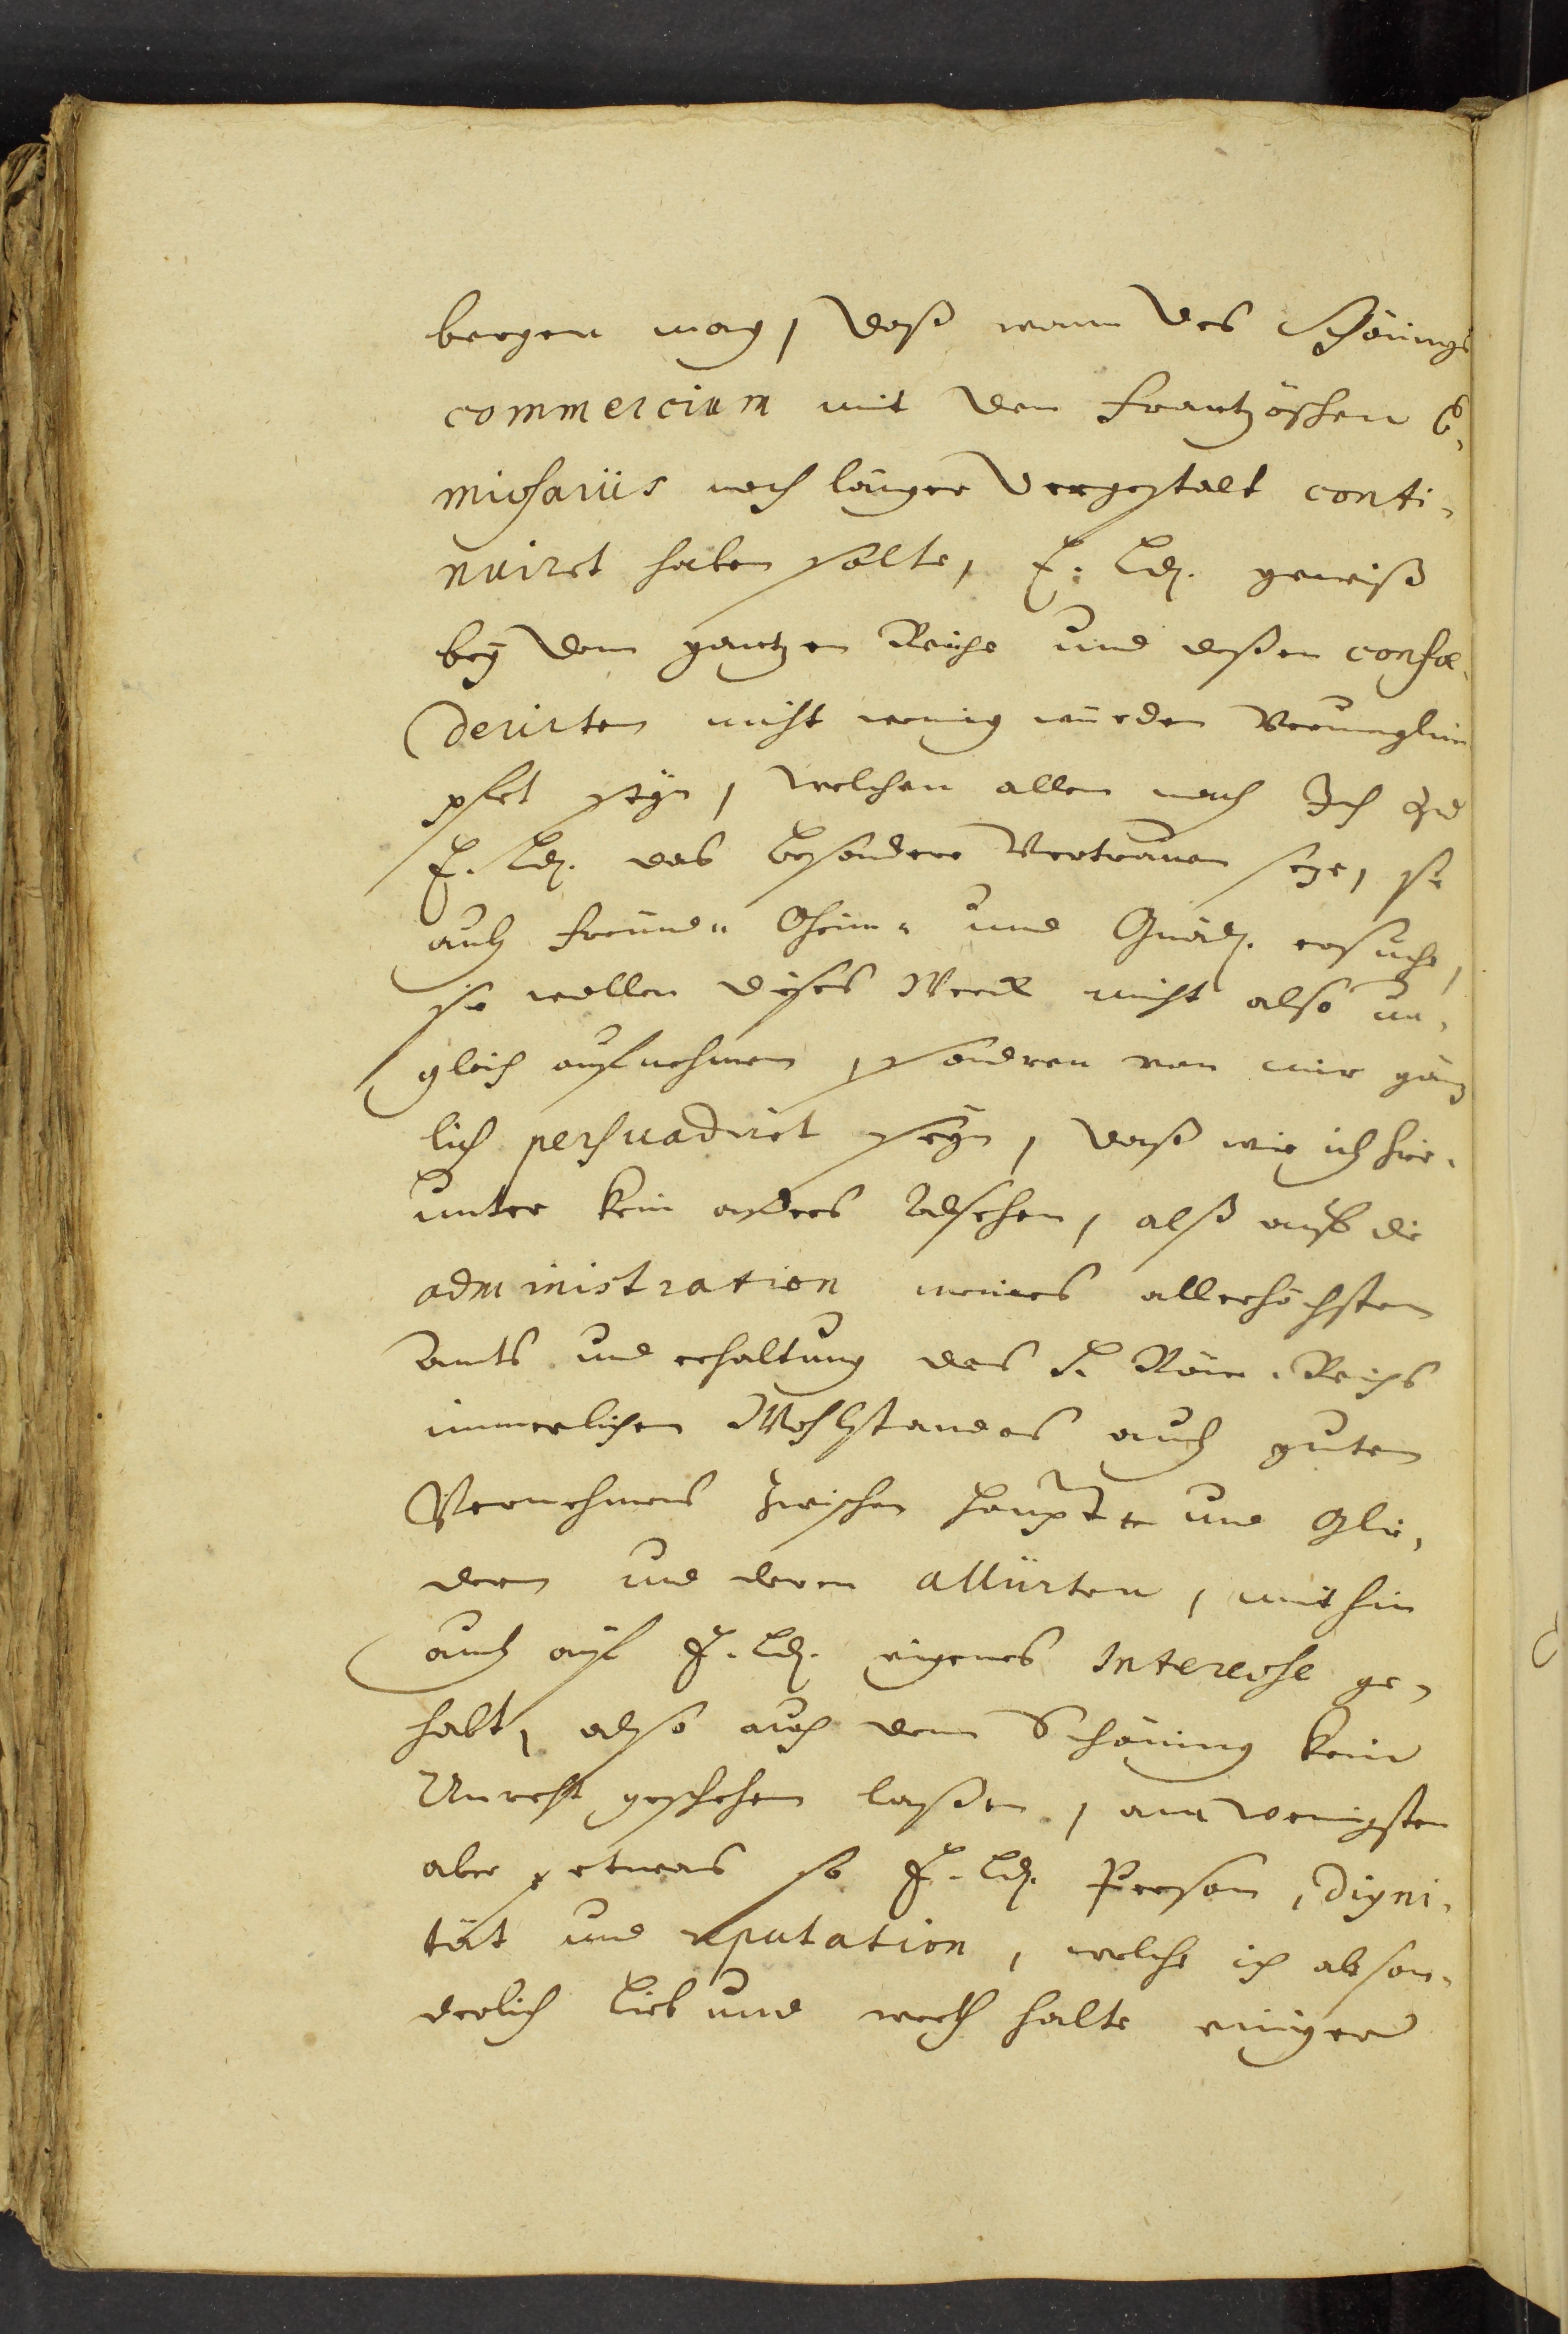 bergen mag, daß wann des Schönings
commercium mit den Frantzösischen E-
missariis noch länger dergestalt conti-
nuiret haben solte, E. Ld. gewiß
bey dem gantzen Reiche und deßen confœ-
derirten nicht wenig würden Verunglim
pfet seyn, welchen allen nach Ich zu
E. Ld. das besondere Vertrauen setze, sie
auch Freund- Oheim- und Gnäd. ersuche,
sie wollen dieses Werck nicht also un-
gleich aufnehmen, sondern von mir gäntz
lich persuadiret seyn, daß wie ich hier-
unter kein anders Absehen, alß auff die
administration meines allerhöchsten
Ambts und erhaltung des H. Röm. Reichs
innerlichen Wohlstandes auch guten
Vernehmens zwischen Haupt- und Glie-
dern und deren alliirten, mithin
auch auf E. Ld. eigenes Interesse ge-
habt, also auch dem Schöning kein
Unrecht geschehen laßen, am wenigsten
aber etwas so E. Ld. Person, Digni-
tät und reputation, welche ich abson-
derlich Lieb und werth halte einiger